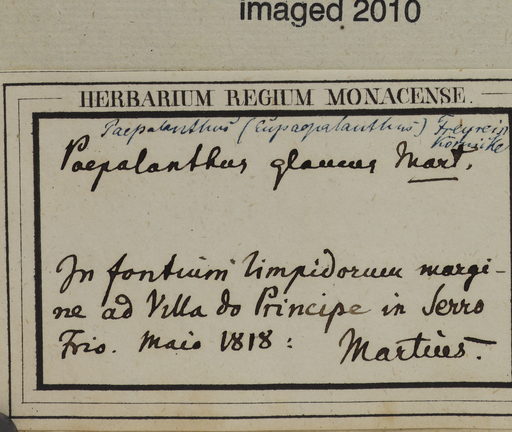 imaged 2010
HERBARIUM REGIUM MONACENSE.
Paepalanthus (Eupaepalanthus) Freyreissii
Körnicke
Paepalanthus glaucus Mart.
In fontium limpidorum margi-
ne ad Villa do Principe in Serro
Frio. Maio 1818:
Martius.